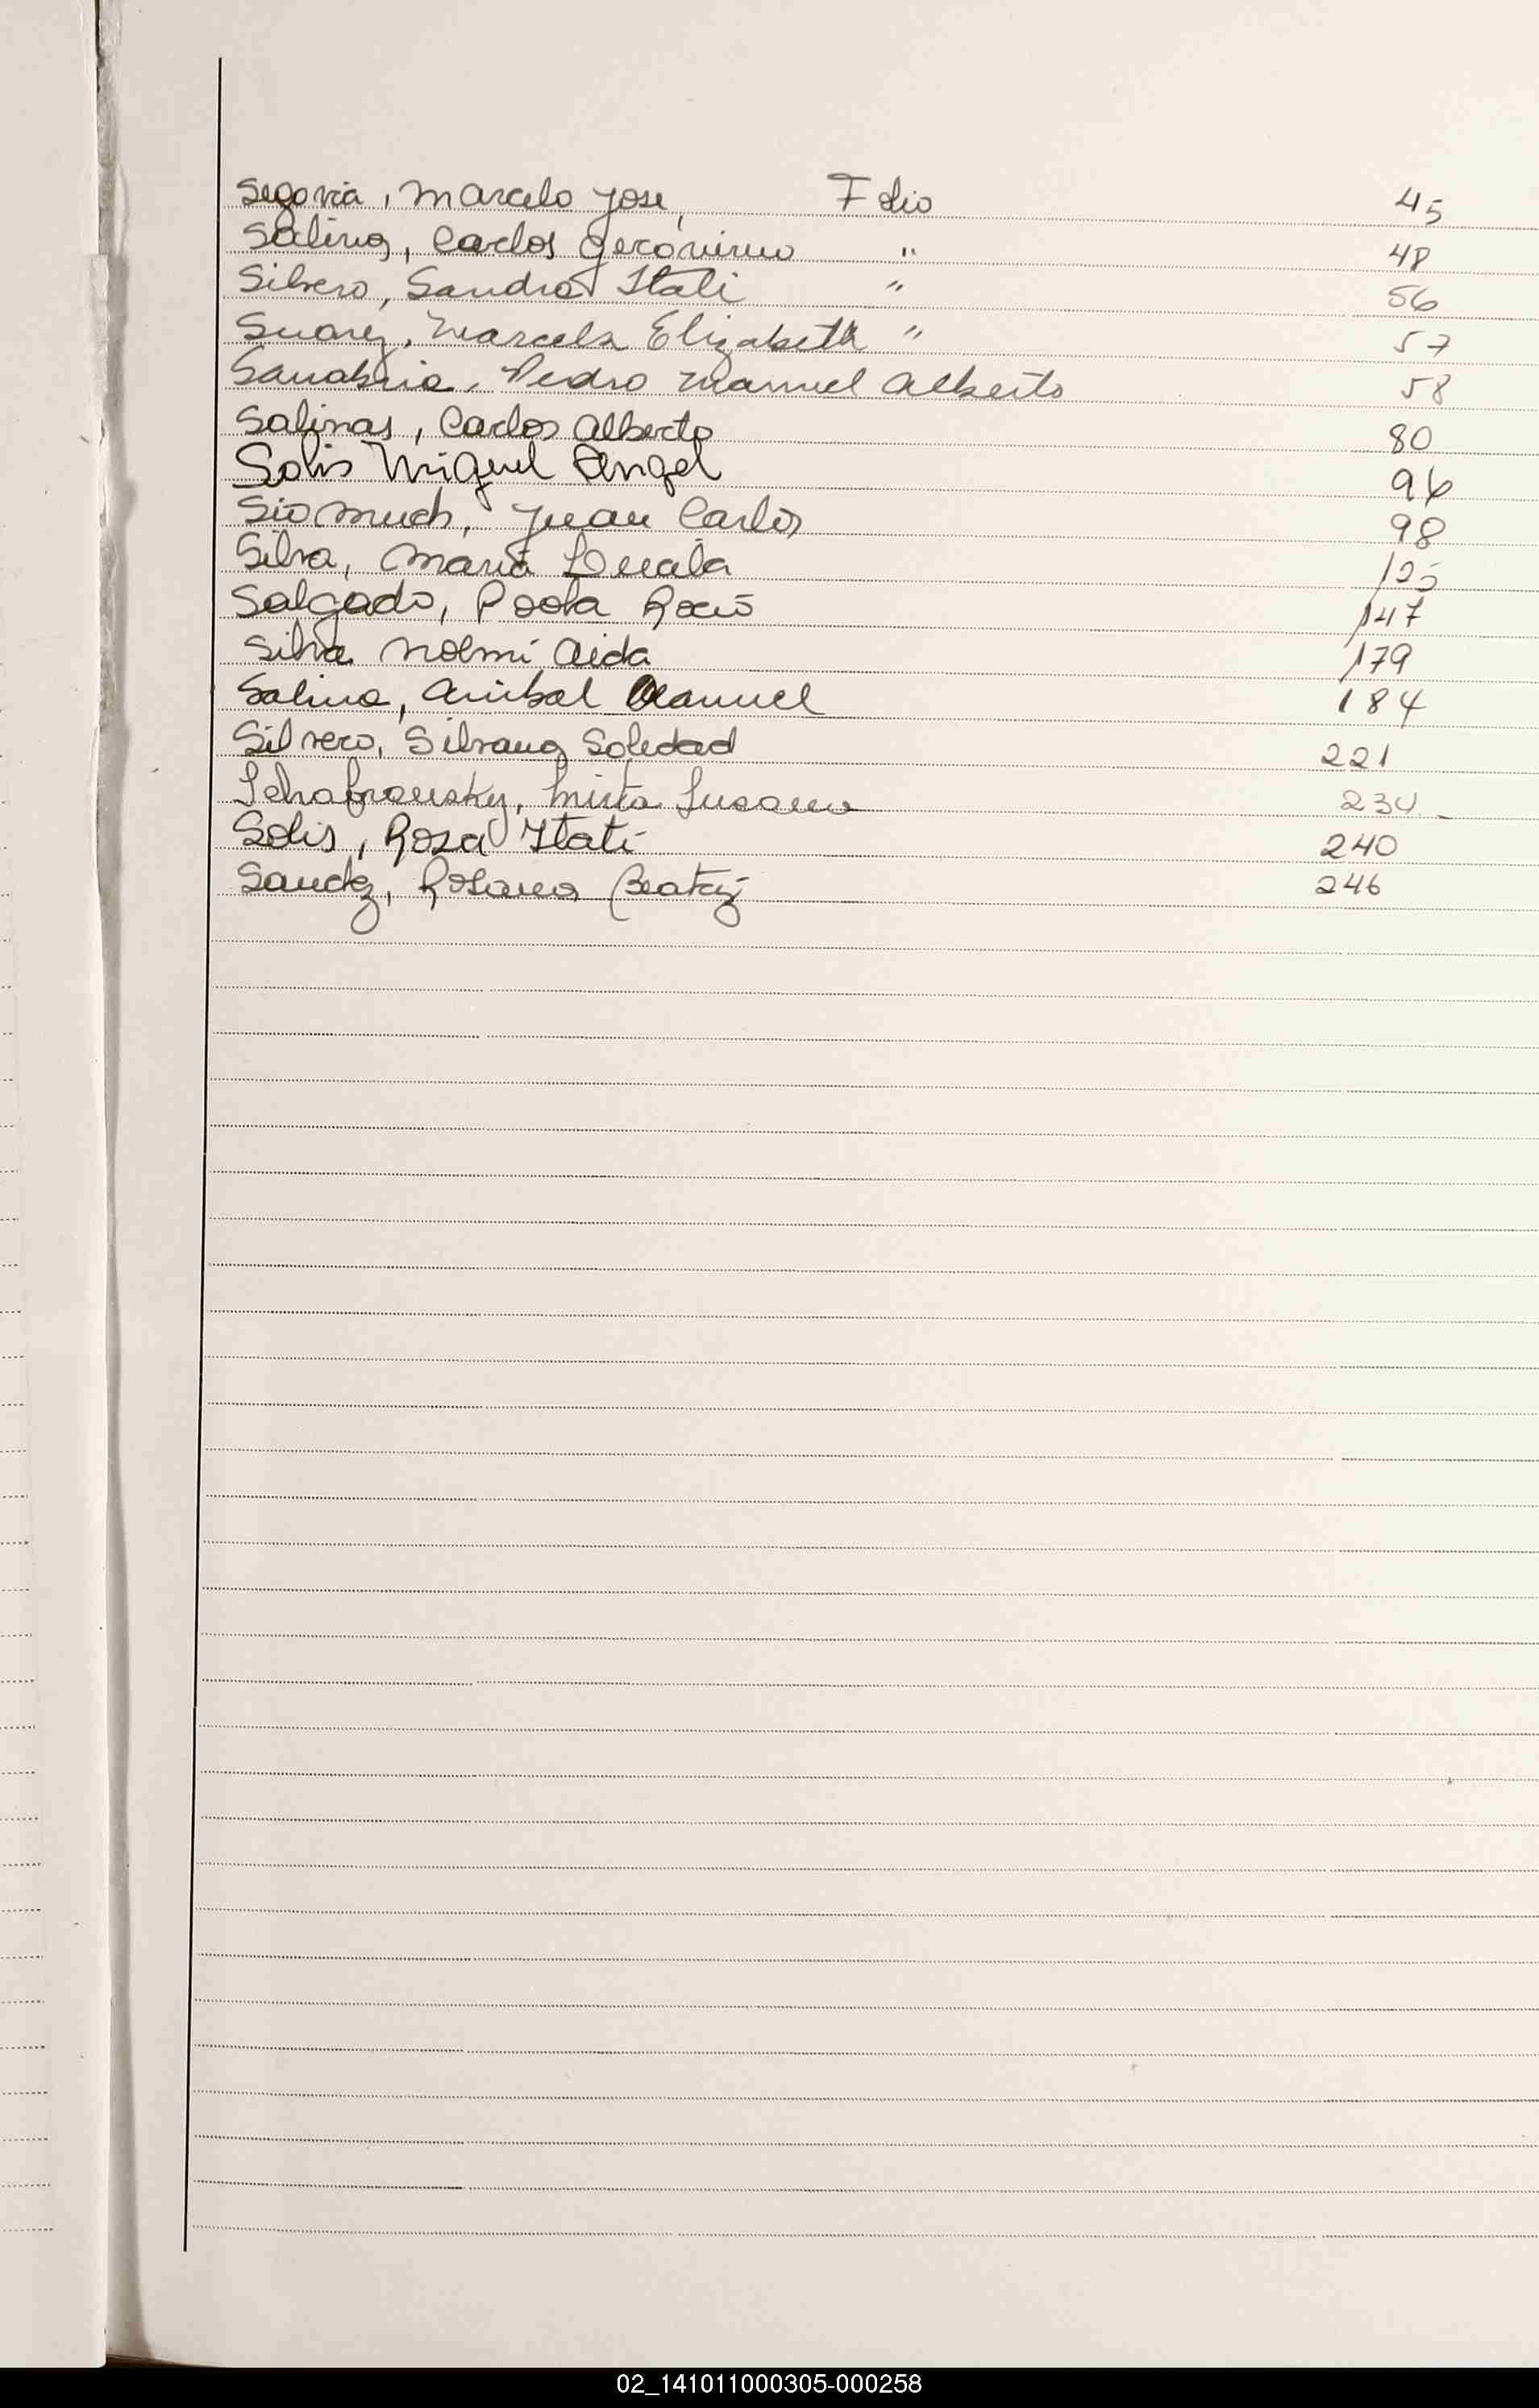 Segovia, Marcelo Jose, Folio 45
Salina, Carlos Gerónimo " 48
Silvero, Sandra Itati " 56
Suarez, Marcela Elizabeth " 57
Sanabria, Pedro Manuel Alberto 58
Salinas, Carlos Alberto 80
Solis Miguel Angel 96
Siomuch, Juan Carlos 98
Silva, Maria
Salgado, Paola Rocio 147
Silva Noemi Aida 179
Salina, Anibal Manuel 184
Silvero, Silvana Soledad 221
Mirta Susana
Solis, Rosa Itati 240
Rosana Beatriz 246
02_141011000305-000258